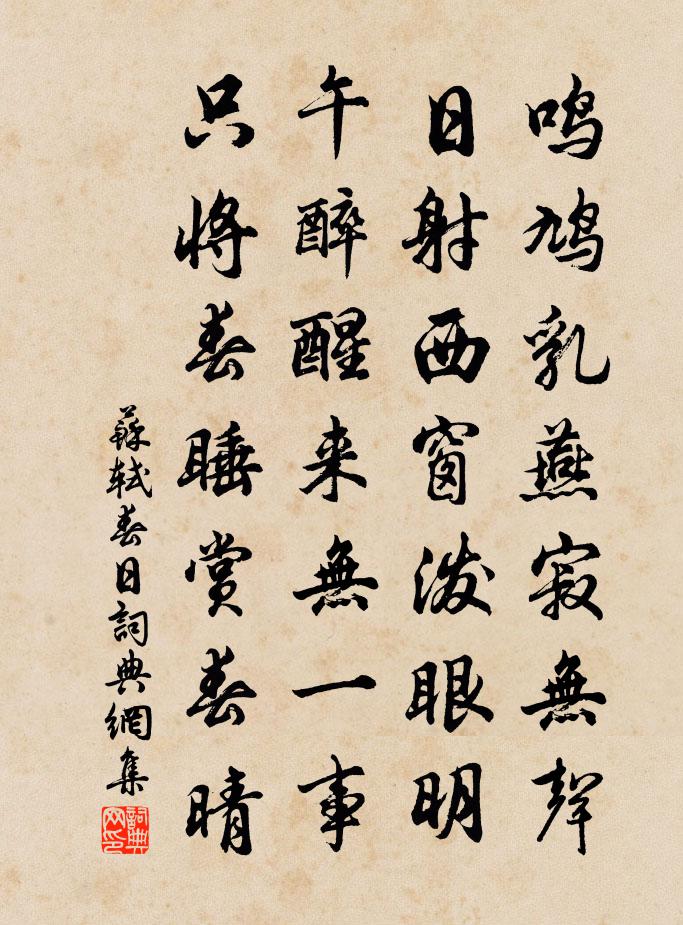 鳴鳩乳燕寂無聲
日射西窗潑眼明
午醉醒来無一事
只將春睡賞春晴
蘇軾春日詞典網集
詞典网印